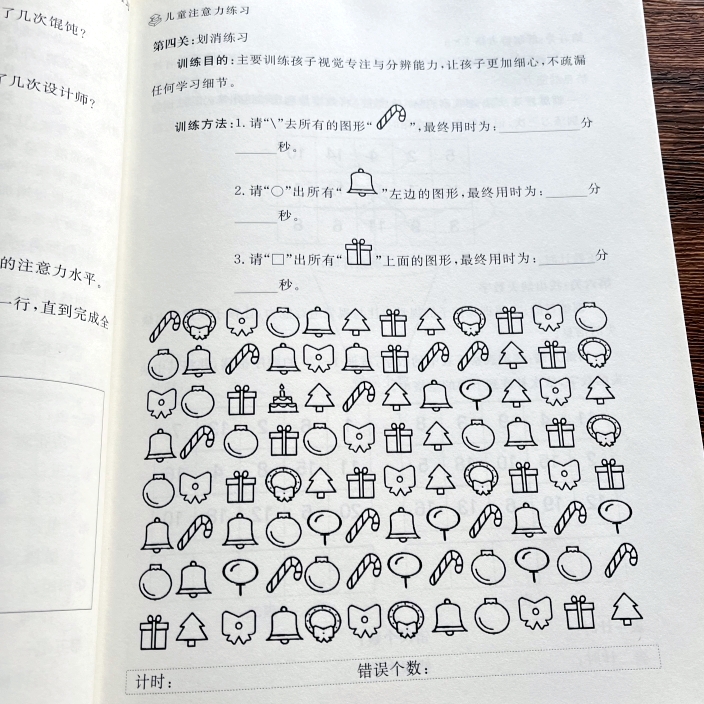 了几次馄饨?
了几次设计师?
的注意力水平。
一行,直到完成全
儿童注意力练习
第四关:划消练习
训练目的:主要训练孩子视觉专注与分辨能力,让孩子更加细心,不疏漏
任何学习细节。
训练方法:1. 请“\”去所有的图形“ ”,最终用时为: 分
秒。
2. 请“○”出所有“ ”左边的图形,最终用时为: 分
秒。
3. 请“□”出所有“ ”上面的图形,最终用时为: 分
秒。
计时: 错误个数: